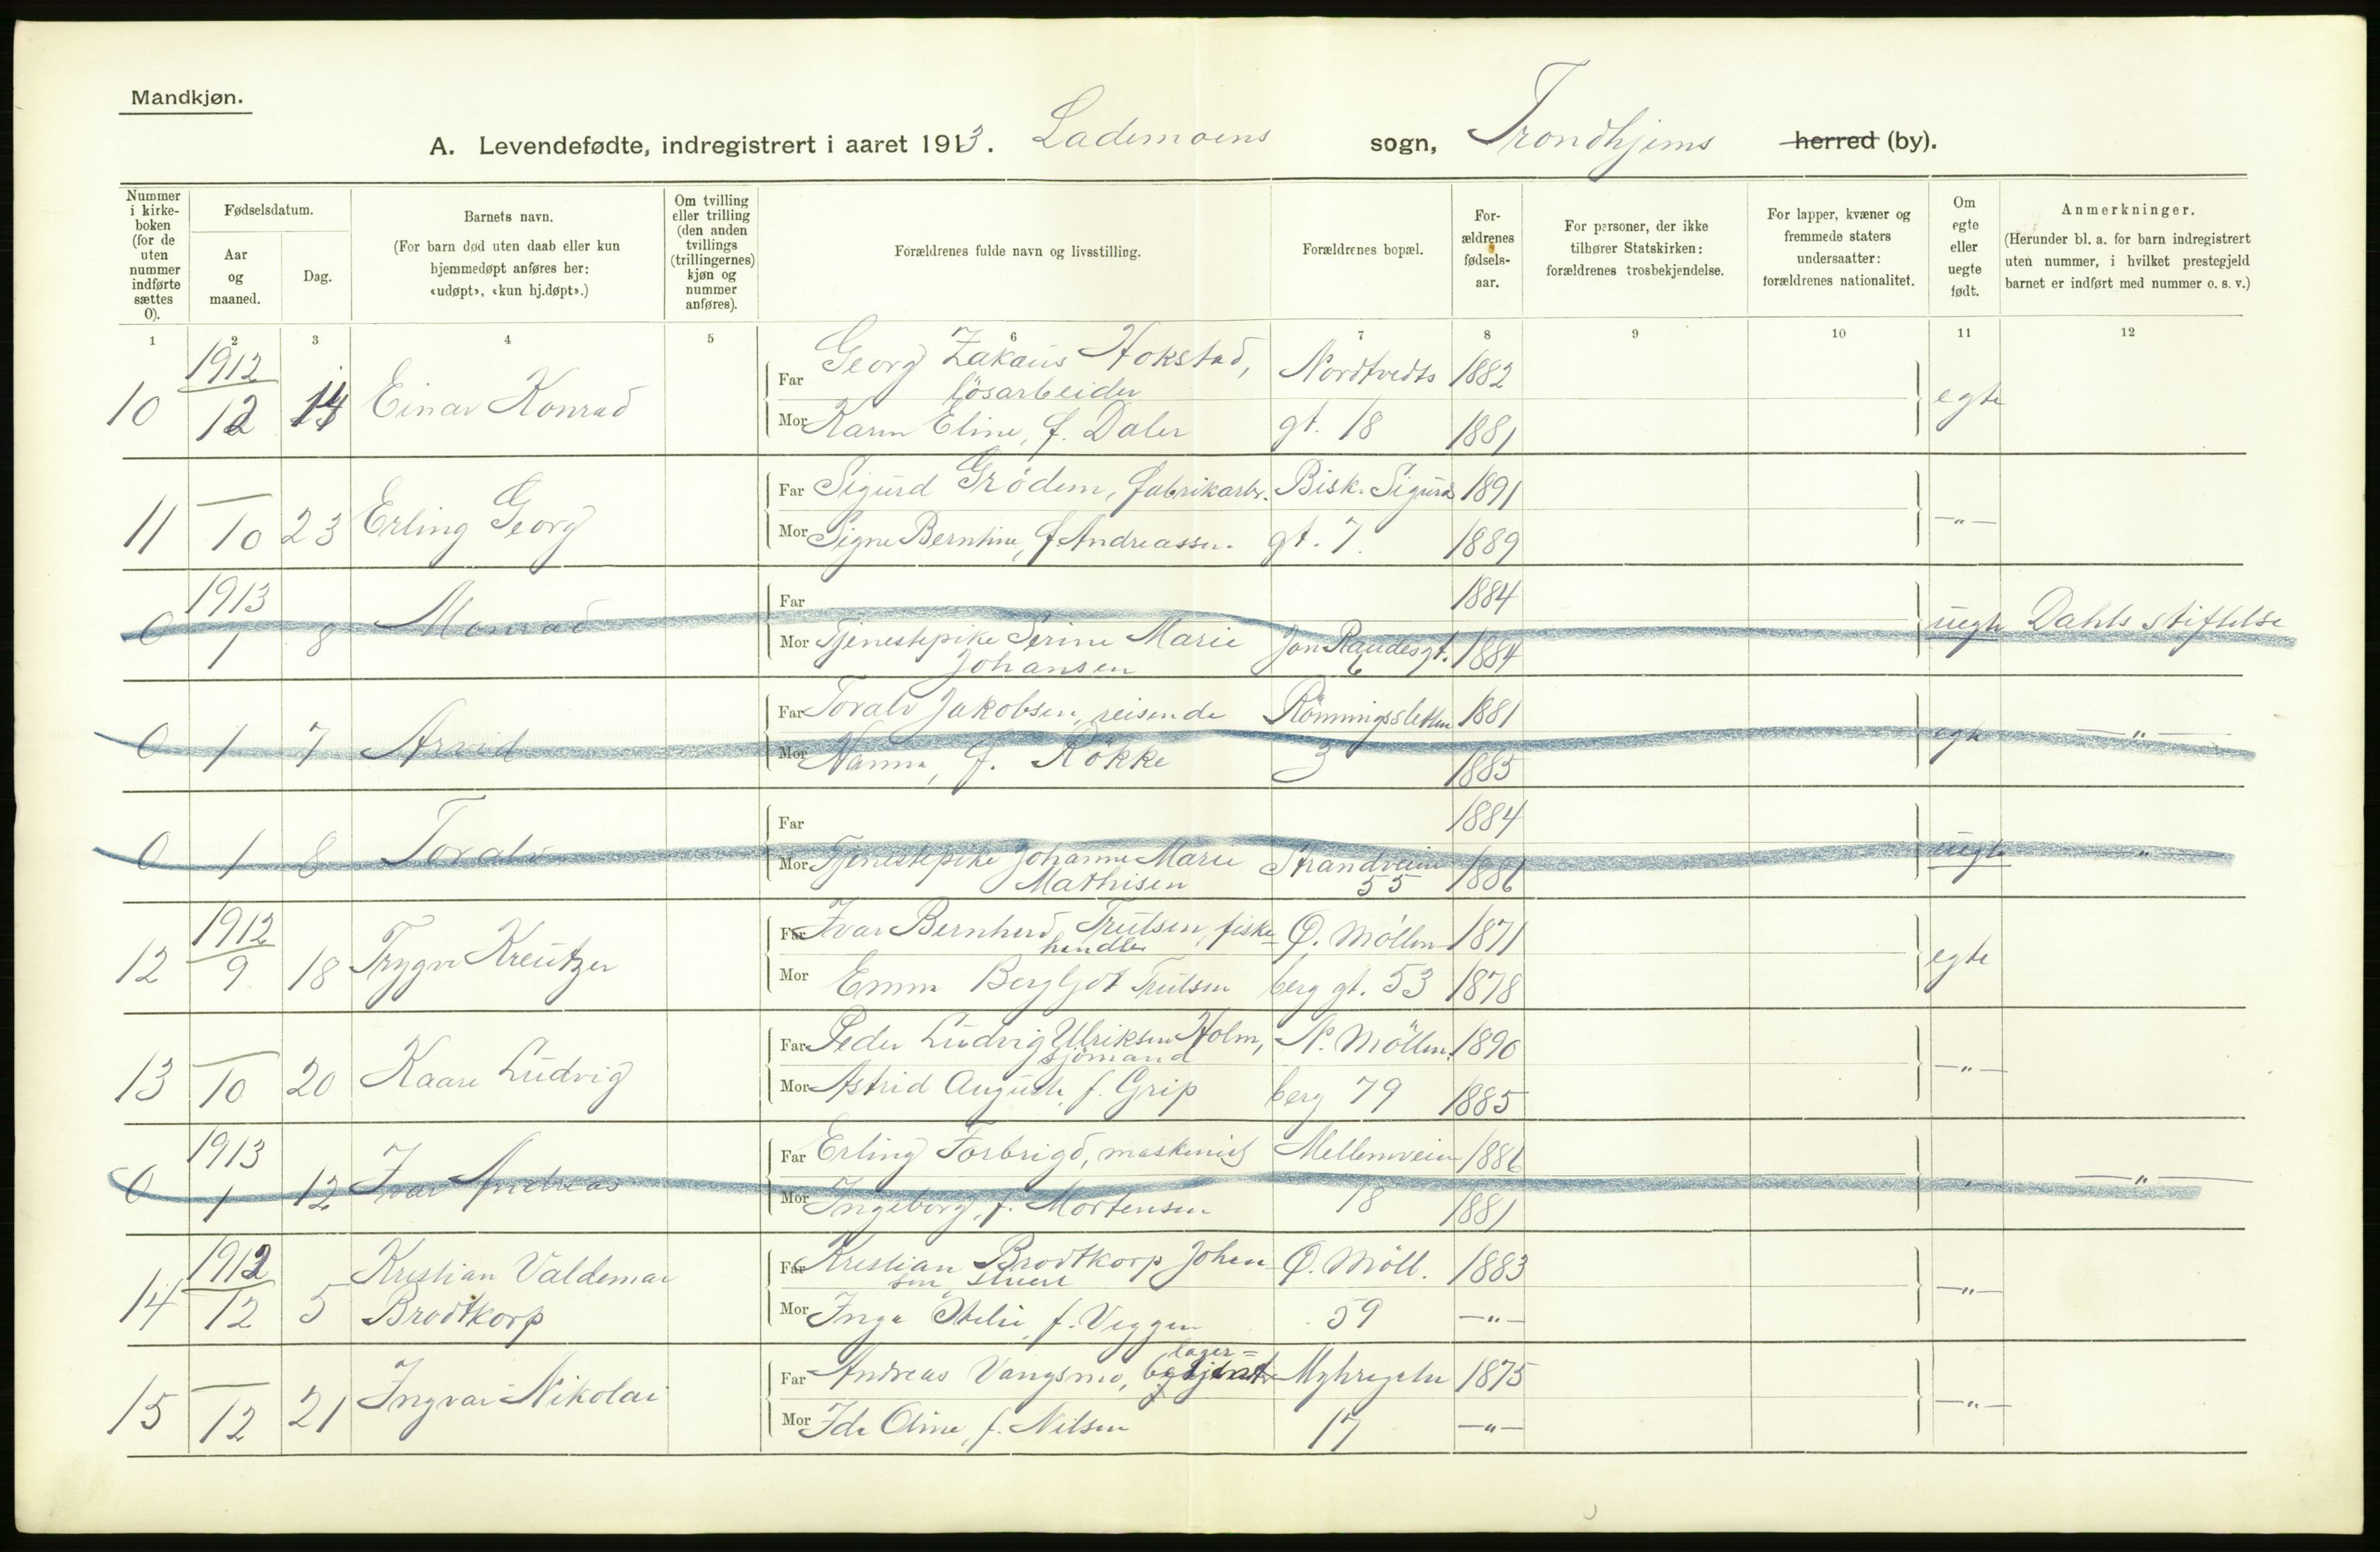 Mandkjøn.
A. Levendefødte, indregistrert i aaret 1913. Lademoens sogn, Trondhjems herred (by).
Nummer i kirke-boken (for de uten nummer indførte sættes 0).
Fødselsdatum.
Aar og maaned.
Dag.
Barnets navn.
(For barn død uten daab eller kun hjemmedøpt anføres her: «udøpt», «kun hj.døpt».)
Om tvilling eller trilling (den anden tvillings (trillingernes) kjøn og nummer anføres).
Forældrenes fulde navn og livsstilling.
Forældrenes bopæl.
For-ældrenes fødsels-aar.
For personer, der ikke tilhører Statskirken: forældrenes trosbekjendelse.
For lapper, kvæner og fremmede staters undersaatter: forældrenes nationalitet.
Om egte eller uegte født.
Anmerkninger.
(Herunder bl. a. for barn indregistrert uten nummer, i hvilket prestegjeld barnet er indført med nummer o. s. v.)
1 2 3 4 5 6 7 8 9 10 11 12
1912
Far Georg Zakaus Hokstad, Nordtvedts 1882
løsarbeider
10 12 14 Einar Konrad egte
Mor Karen Eline, f. Daler gt. 18 1881
Far Sigurd Grödem, fabrikarb. Bisk. Sigurds 1891
11 10 23 Erling Georg —"—
Mor Signe Berntine, f. Andreassen gt. 7. 1889
1913 Far 1884
0 1 8 Monrad uegte Dahls stiftelse
Mor Tjenestepike Serine Marie Jon Raudesgt. 1884
Johansen 6
Far Toralv Jakobsen, reisende Rönningssletten 1881
0 1 7 Arvid egte —"—
Mor Nanna, f. Rökke 3 1885
Far 1884
0 1 8 Toralv uegte "
Mor Tjenestepike Johanne Marie Strandveien 1886
Mathisen 55
1912 Far Ivar Bernherd Trulsen, fiske- Ø. Möllen- 1871
handler
12 9 18 Trygve Kreutzer egte
Mor Emma Bergljot Trulsen berg gt. 53 1878
Far Peder Ludvig Ulriksen Holm, N. Möllen- 1890
sjömand
13 10 20 Kaare Ludvig —"—
Mor Astrid Auguste, f. Grip berg 79 1885
1913 Far Erling Torbrigd, maskinist Mellemveien 1886
0 1 12 Ivar Andreas " —"—
Mor Ingeborg, f. Mortensen 18 1881
1912 Kristian Valdemar Far Kristian Brodtkorp Johan- Ø. Möll. 1883
sen, stuert
14 12 5 Brodtkorp —"—
Mor Inga Otelie, f. Viggen 59 —"—
lager=
Far Andreas Vangsmo, betjent Myhregaten 1875
15 12 21 Ingvar Nikolai —"—
Mor Ida Oline, f. Nilsen 17 —"—